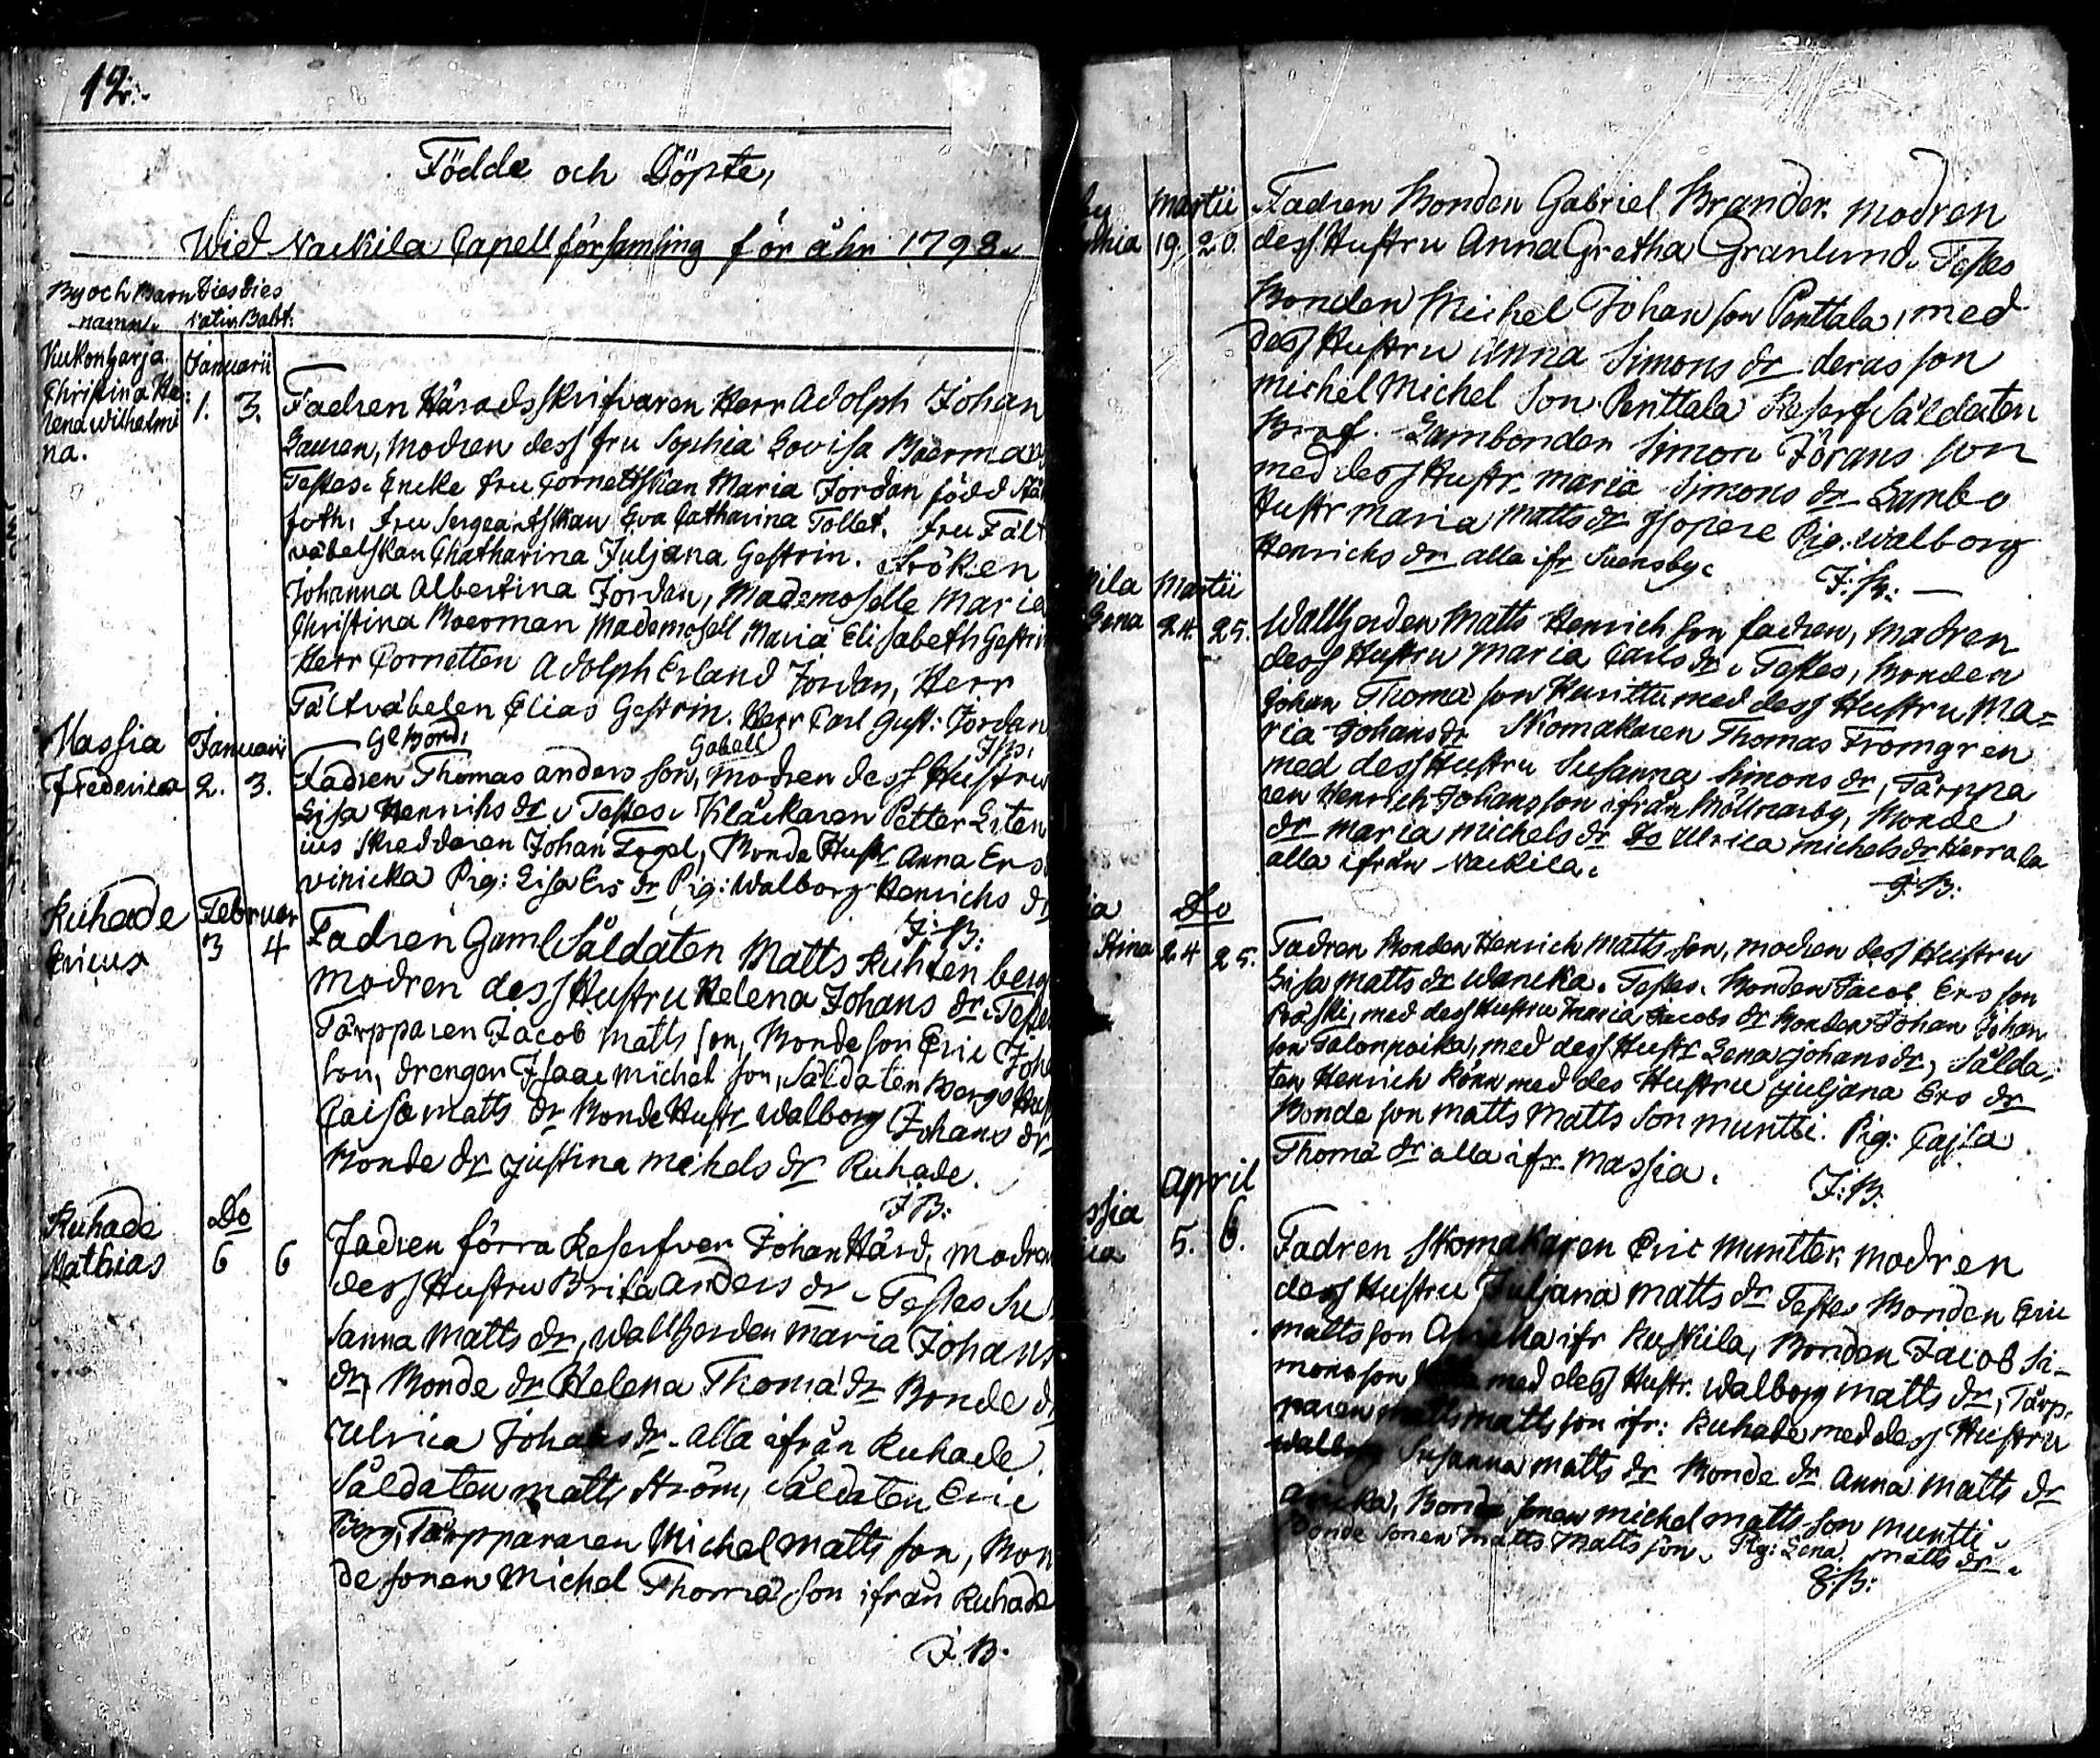 12.
Födde och Döpte,
Wid Nackila Capell församling för åhr 1798.
By och Barn Dies Dies
namn. natus Babt:
Januarii
Christina He=
lena Wilhelmi
na.
1. 3.
Fadren Häradsskrifvaren Herr Adolph Johan
Lauren, Modren dess fru Sophia Lovisa Moerman
Testes. Encke fru Cornettskan Maria Jordan född
foth, fru Sergeantskan Eva Catharina Tollet, fru Fält
väbelskan Chatharina Juljana Gestrin. Fröken
Johanna Albertina Jordan, Mademoselle Maria
Christina Moerman Mademosell Maria Elisabeth Gestrin
Herr Cornetten Adolph Erland Jordan, Herr
Fältväbelen Elias Gestrin. Herr Carl Gust: Jordan
J.B.
Massia Januari
Frederica 2. 3.
Fadren Thomas Anders son, Modren dess Hustru
Lisa Henrihs dr. Testes. Klåckaren Petter Liten
ius Skreddaren Johan Fogel, Bonde Hustr Anna Ers
vinicka Pig: Lisa Ers dr Pig: Walborg Henrichs dr
J:B:
Ruhade Februar
Ericus 3 4
Fadren Gaml Såldaten Matts Ruhten berg
Modren dess Hustru Helena Johans dr. Testes
Tårpparen Jacob Matts son, Bonde son Eric Joha
son, drengen Isaac Michel son, Såldaten Bergs Hust
Caisa Matts dr Bonde Hustr Walborg Johans dr
Bonde dr Justina Michels dr Ruhade.
J B:
Ruhade Do
Mathias 6 6
Fadren förra Reserfven Johan Hård, Modren
dess Hustru Brita Anders dr. Testes Su
sanna Matts dr, Wallherden Maria Johans
dr, Bonde dr Helena Thoma dr Bonde dr
Ulrica Johans dr. alla ifrån Ruhade.
Såldaten Matts Ström, Såldaten Eric
Berg, Tårppararen Michel Matts son, Bon
de sonen Michel Thoma son ifrån Ruhade
J.B.
Martii
19. 20.
Fadren Bonden Gabriel Brander. Modren
dess Hustru Anna Gretha Granlund. Testes
Bonden Michel Johan son Penttala, med
dess Hustru Anna Simons dr deras son
Michel Michel Son Penttala Reserf Såldaten
Lambonden Simon Jörans son
med dess Hustr. Maria Simons dr Lambo
Hustr Maria Matts dr Pig: Walborg
Henrichs dr alla ifr Svensby.
J:B:
Martii
Lena 24. 25.
Wallherden Matts Henrich son fadren, Madren
dess Hustru Maria Carls dr. Testes, Bonden
Johan Thoma son Kurittu med dess Hustru Ma=
ria Johans dr Skomakaren Thomas Fromgren
med dess Hustru Susanna Simons dr, Tårppa
ren Henrich Johans son ifrån Möllnarby, Bonde
dr Maria Michels dr Do Ulrica Michels dr Herrala
alla ifrån Nackila.
J:B:
Do
Stina 24 25.
Fadren Bonden Henrich Matts son, Modren dess Hustru
Lisa Matts dr Waneka. Testes. Bonden Jacob Ers son
med dess Hustru Maria Jacobs dr Bonden Johan Johan
son Talonpoika, med dess Hustr Lena Johans dr, Sålda-
ten Henrich Rönn med des Hustru Juljana Ers dr
Bonde son Matts Matts Son Muntti. Pig: Cajsa
Thoma dr alla ifr. Massia.
J:B:
April
5. 6.
Fadren Skomakaren Eric Muntter. Modren
dess Hustru Juljana Matts dr Testes Bonden Eric
Matts son ifr Ruskila, Bonden Jacob Si-
mons son med dess Hustr. Walborg Matts dr, Tårp-
paren Matts Matts son ifr: Ruhade med dess Hustru
Walborg Susanna Matts dr Bonde dr Anna Matts dr
Bonde sonen Michel Matts son Muntti.
Bonde sonen Matts Matts son. Pig: Lena Matts dr.
J:B: